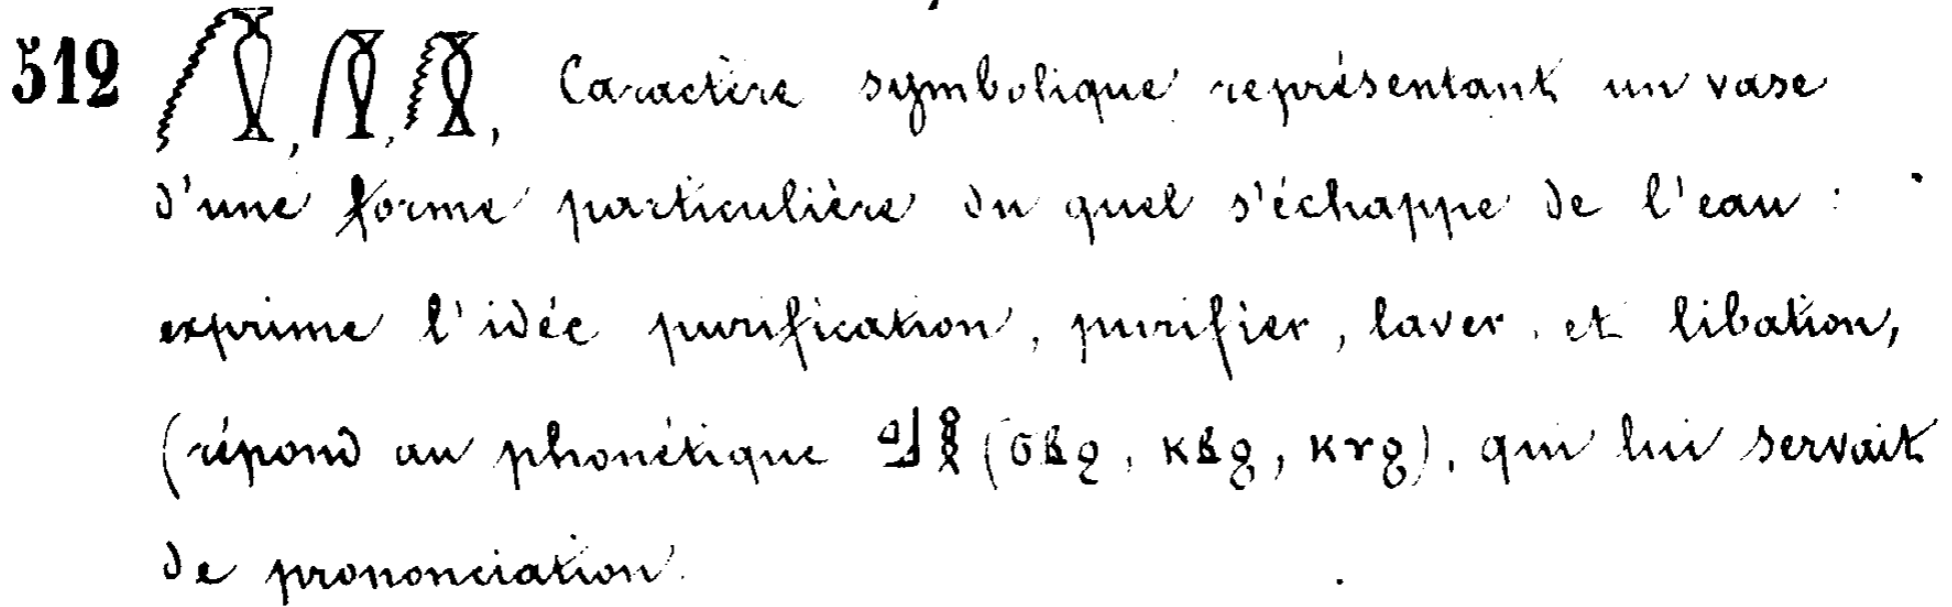 512 𓏂, 𓏂, 𓏂, Caractère symbolique représentant un vase
d'une forme particulière du quel s'échappe de l'eau :
exprime l'idée purification, purifier, laver, et libation,
(répond au phonétique 𓈎𓃀𓎛 (ϭⲃϩ, ⲕⲃϩ, ⲕⲩϩ), qui lui servait
de prononciation.